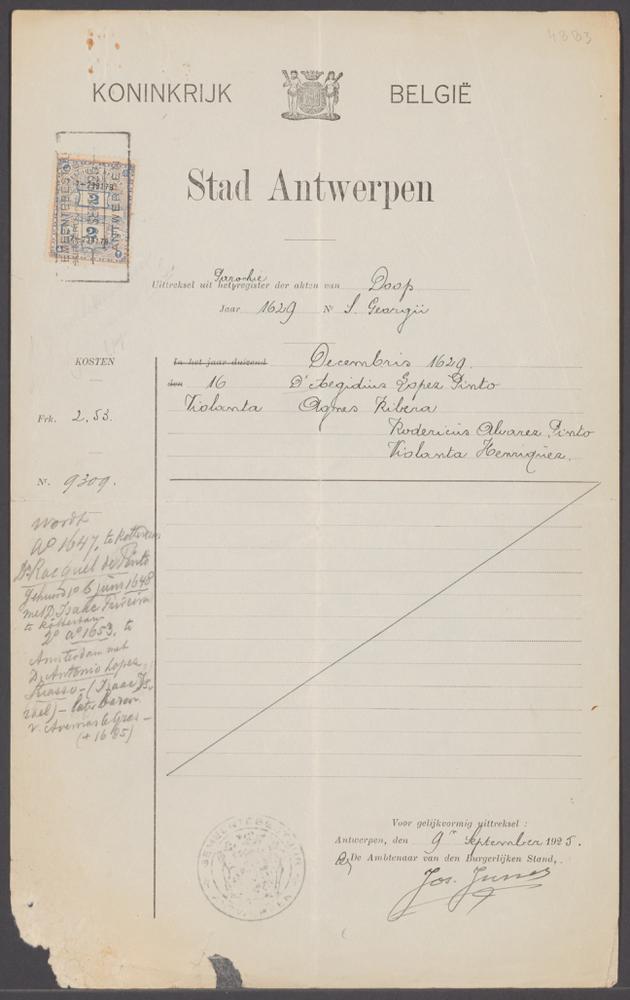 4883
KONINKRIJK BELGIË
Stad Antwerpen
GEMEENTEBEST
ANTWERPEN
2
Parochie
Uittreksel uit het register der akten van Doop
Jaar 1629 Nr S. Georgii
KOSTEN
In het jaar duizend Decembris 1629.
den 16 D'Aegidius Lopez Pinto
Violanta Agnes Ribera
Frk. 2,53.
Rodericus Alvarez Pinto
Violanta Henriquez.
Nr. 9309.
wordt
Ao 1647, te Rotterdam
Da Racquel de Pinto
gehuwd 1o 6 juni 1648
met D. Isaac Pereira
te Rotterdam
2o ao 1653, te
Amsterdam met
D. Antonio Lopez
Suasso - (Isaac Is-
rael) - later baron
v. Avernas le Gras -
(+ 1685)
Voor gelijkvormig uittreksel :
Antwerpen, den 9n September 1925.
De Ambtenaar van den Burgerlijken Stand,
Jos.